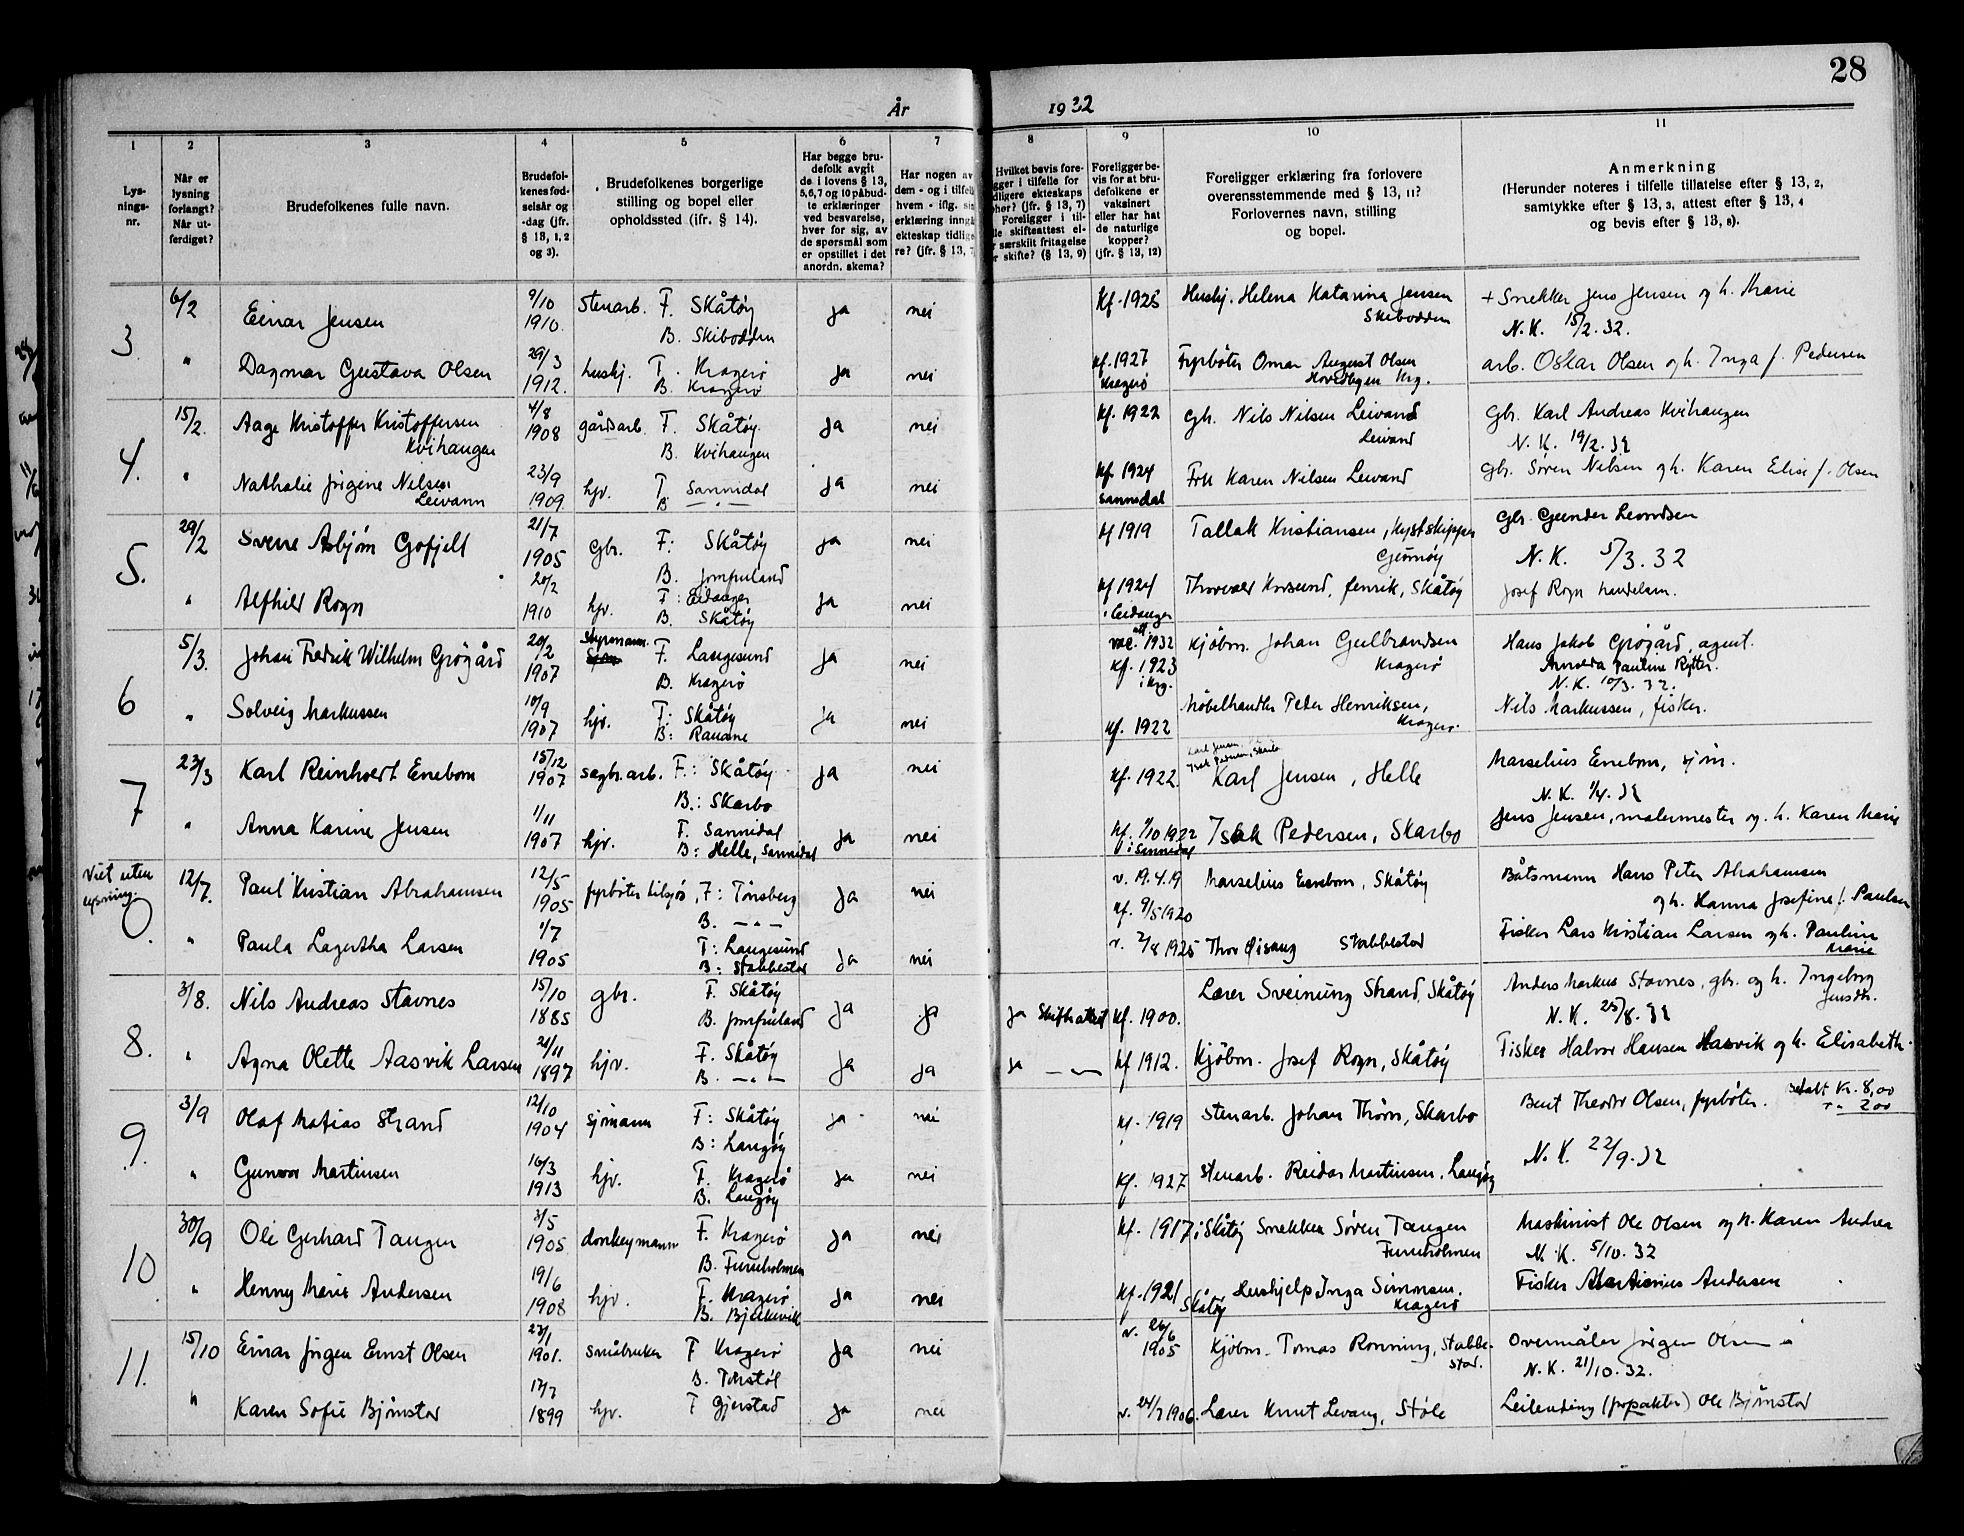 28
År 1932
1 2 3 4 5 6 7 8 9 10 11
Lys-
nings-
nr.
Når er
lysning
forlangt?
Når ut-
ferdiget?
Brudefolkenes fulle navn.
Brudefol-
kenes fød-
selsår og
-dag (jfr.
§ 13, 1, 2
og 3).
Brudefolkenes borgerlige
stilling og bopel eller
opholdssted (ifr. § 14).
Har begge bru-
defolk avgit
de i lovens § 13,
5,6,7 og 10 påbud-
te erklæringer
ved besvarelse,
hver for sig, av
de spørsmål som
er opstillet i det
anordn. skema?
Har nogen av
dem - og i tilfelle
hvem - iflg. sin
erklæring inngå
ekteskap tidlige
re? (jfr. § 13, 7
Hvilket bevis fore-
gger i tilfelle for
dligere ekteskaps
phør? (jfr. § 13, 7)
Foreligger i til-
lle skifteattest el-
r særskilt fritagelse
r skifte? (§ 13, 9)
Foreligger be-
vis for at bru-
defolkene er
vaksinert
eller har hat
de naturlige
kopper?
(jfr. § 13, 12)
Foreligger erklæring fra forlovere
overensstemmende med § 13, 11?
Forlovernes navn, stilling
og bopel.
Anmerkning
(Herunder noteres i tilfelle tillatelse efter § 13, 2,
samtykke efter § 13, 3, attest efter § 13, 4
og bevis efter § 13, 8).
3 6/2 Einar Jensen 9/10 1910. Stenarb. F. Skåtøy ja nei Kf. 1925 Hushj. Helena Katarina Jensen + Snekker Jens Jensen og h. Marie
B. Skibodden Skibodden N.K. 15/2.32.
" Dagmar Gustava Olsen 29/3 1912. hushj. F. Kragerø ja nei kf. 1927 Fyrbøter Omar August Olsen arb. Oskar Olsen og h. Inga f. Pedersen
B. Kragerø Kragerø Krg.
4. 15/2. Aage Kristoffer Kristoffersen 4/8 1908 gårdsarb. F. Skåtøy. ja nei kf. 1922 gb. Nils Nilsen Leivand Gbr. Karl Andreas Kvihaugen
Kvihaugen B. Kvihaugen Leivand N.K. 19/2.32
" Nathalie Jørgine Nilsen 23/9 1909. hjv. F Sannidal ja nei kf. 1924 Frk Karen Nilsen Leivand Gb. Søren Nilsen og h. Karen Elise f. Olsen
Leivann B — " — Sannidal
5. 29/2 Sverre Asbjørn Gofjell 21/7 1905 Gbr. F: Skåtøy ja nei kf 1919 Tallak Kristiansen, kystskipper Gbr. Gunder
B. Jomfruland N.K. 5/3.32
" Alfhild Rogn 20/2 1910 hjv. F: Eidanger ja nei kf 1924 Thorvald Korsund, fenrik, Skåtøy Josef Rogn handelsm.
B. Skåtøy i Eidanger
6 5/3. Johan Fredrik Wilhelm Grøgård 20/2 1907 styrmann F. Langesund ja nei vac. att 1932 Kjøbm. Johan Gulbrandsen Hans Jakob Grøgård, agent.
B. Kragerø kf. 1923 i Krg. Kragerø Pauline Rytter.
N.K. 10/3.32.
" Solveig Markussen 10/9 1907 hjv. F: Skåtøy ja nei kf. 1922 Møbelhandler Peter Henriksen, Nils Markussen, fisker.
B: Rauane Kragerø.
7 23/3 Karl Reinhert Enebom 15/12 1907 sagbr.arb. F.: Skåtøy ja nei kf. 1922. Karl Jensen, Helle Marselius Enebom, sjøm.
B.: Skarbo N.K. 1/4.32
" Anna Karine Jensen 1/11 1907 hjv. F. Sannidal ja nei kf. 1/10 1922 Isak Pedersen, Skarbo Jens Jensen, malermester og h. Karen Marie
B: Helle, Sannidal i Sannidal
Viet uten
lysning.
0. 12/7. Paul Kristian Abrahamsen 12/5 1905 fyrbøter tilsjøs, F: Tønsberg ja nei v. 19.4.19 Marselius Enebom, Skåtøy Båtsmann Hans Peter Abrahamsen
B. — " — kf. 9/5 1920 og h. Hanna Josefine f. Paulsen
" Paula Lagertha Larsen 1/7 1905 F: Langesund ja nei v. 2/8 1925 Thor Øisang Stabbestad Fisker Lars Kristian Larsen og h. Pauline
B: Stabbestad Marie
8. 3/8. Nils Andreas Stavnes 15/10 1885 gbr. F. Skåtøy ja ja ja Skifteattest kf. 1900. Lærer Sveinung Strand, Skåtøy Anders Markus Stavnes, gbr. og h. Ingeborg
B. Jomfruland N.K. 25/8.32 Jensdtr.
" Agna Olette Aasvik Larsen 21/11 1897 hjv. F. Skåtøy ja ja ja — " — kf 1912. Kjøbm. Josef Rogn, Skåtøy Fisker Halvor Hansen Aasvik og h. Elisabeth.
B. — " —
9. 3/9 Olaf Matias Strand 12/10 1904 sjømann F: Skåtøy ja nei kf. 1919 Stenarb. Johan Thorn, Skarbo Bernt Theodor Olsen, fyrbøter. betalt Kr. 8,00
B: Langøy N.K. 22/9.32 2 00
" Gunvor Martinsen 16/3 1913 hjv. F. Kragerø ja nei kf. 1927 stenarb. Reidar Martinsen, Langøy
B. Langøy
10 30/9 Ole Gerhard Tangen 3/5 1905 donkeymann F. Kragerø ja nei kf. 1917 i Skåtøy Snekker Søren Tangen Maskinist Ole Olsen og h. Karen Andrea
B. Furuholmen Furuholmen N.K. 5/10.32
" Henny Marie Andersen 19/6 1908 hjv. F. Kragerø ja nei kf. 1921 Skåtøy Hushjelp Inga Simonsen. Fisker Martinius Andersen
B. Bjelkevik Kragerø
11. 15/10 Einar Jørgen Ernst Olsen 23/1 1901. småbruker F Kragerø ja nei v. 26/6 1905 Kjøbm. Tomas Rønning, Stabbe-stad. Overmåler Jørgen Olsen
B. Torstøl N.K. 21/10.32.
" Karen Sofie Bjørnstad 17/7 1899 hjv. F Gjerstad ja nei v. 24/7 1906. Lærer Knut Levang, Støle Leilending (forpakter) Ole Bjørnstad